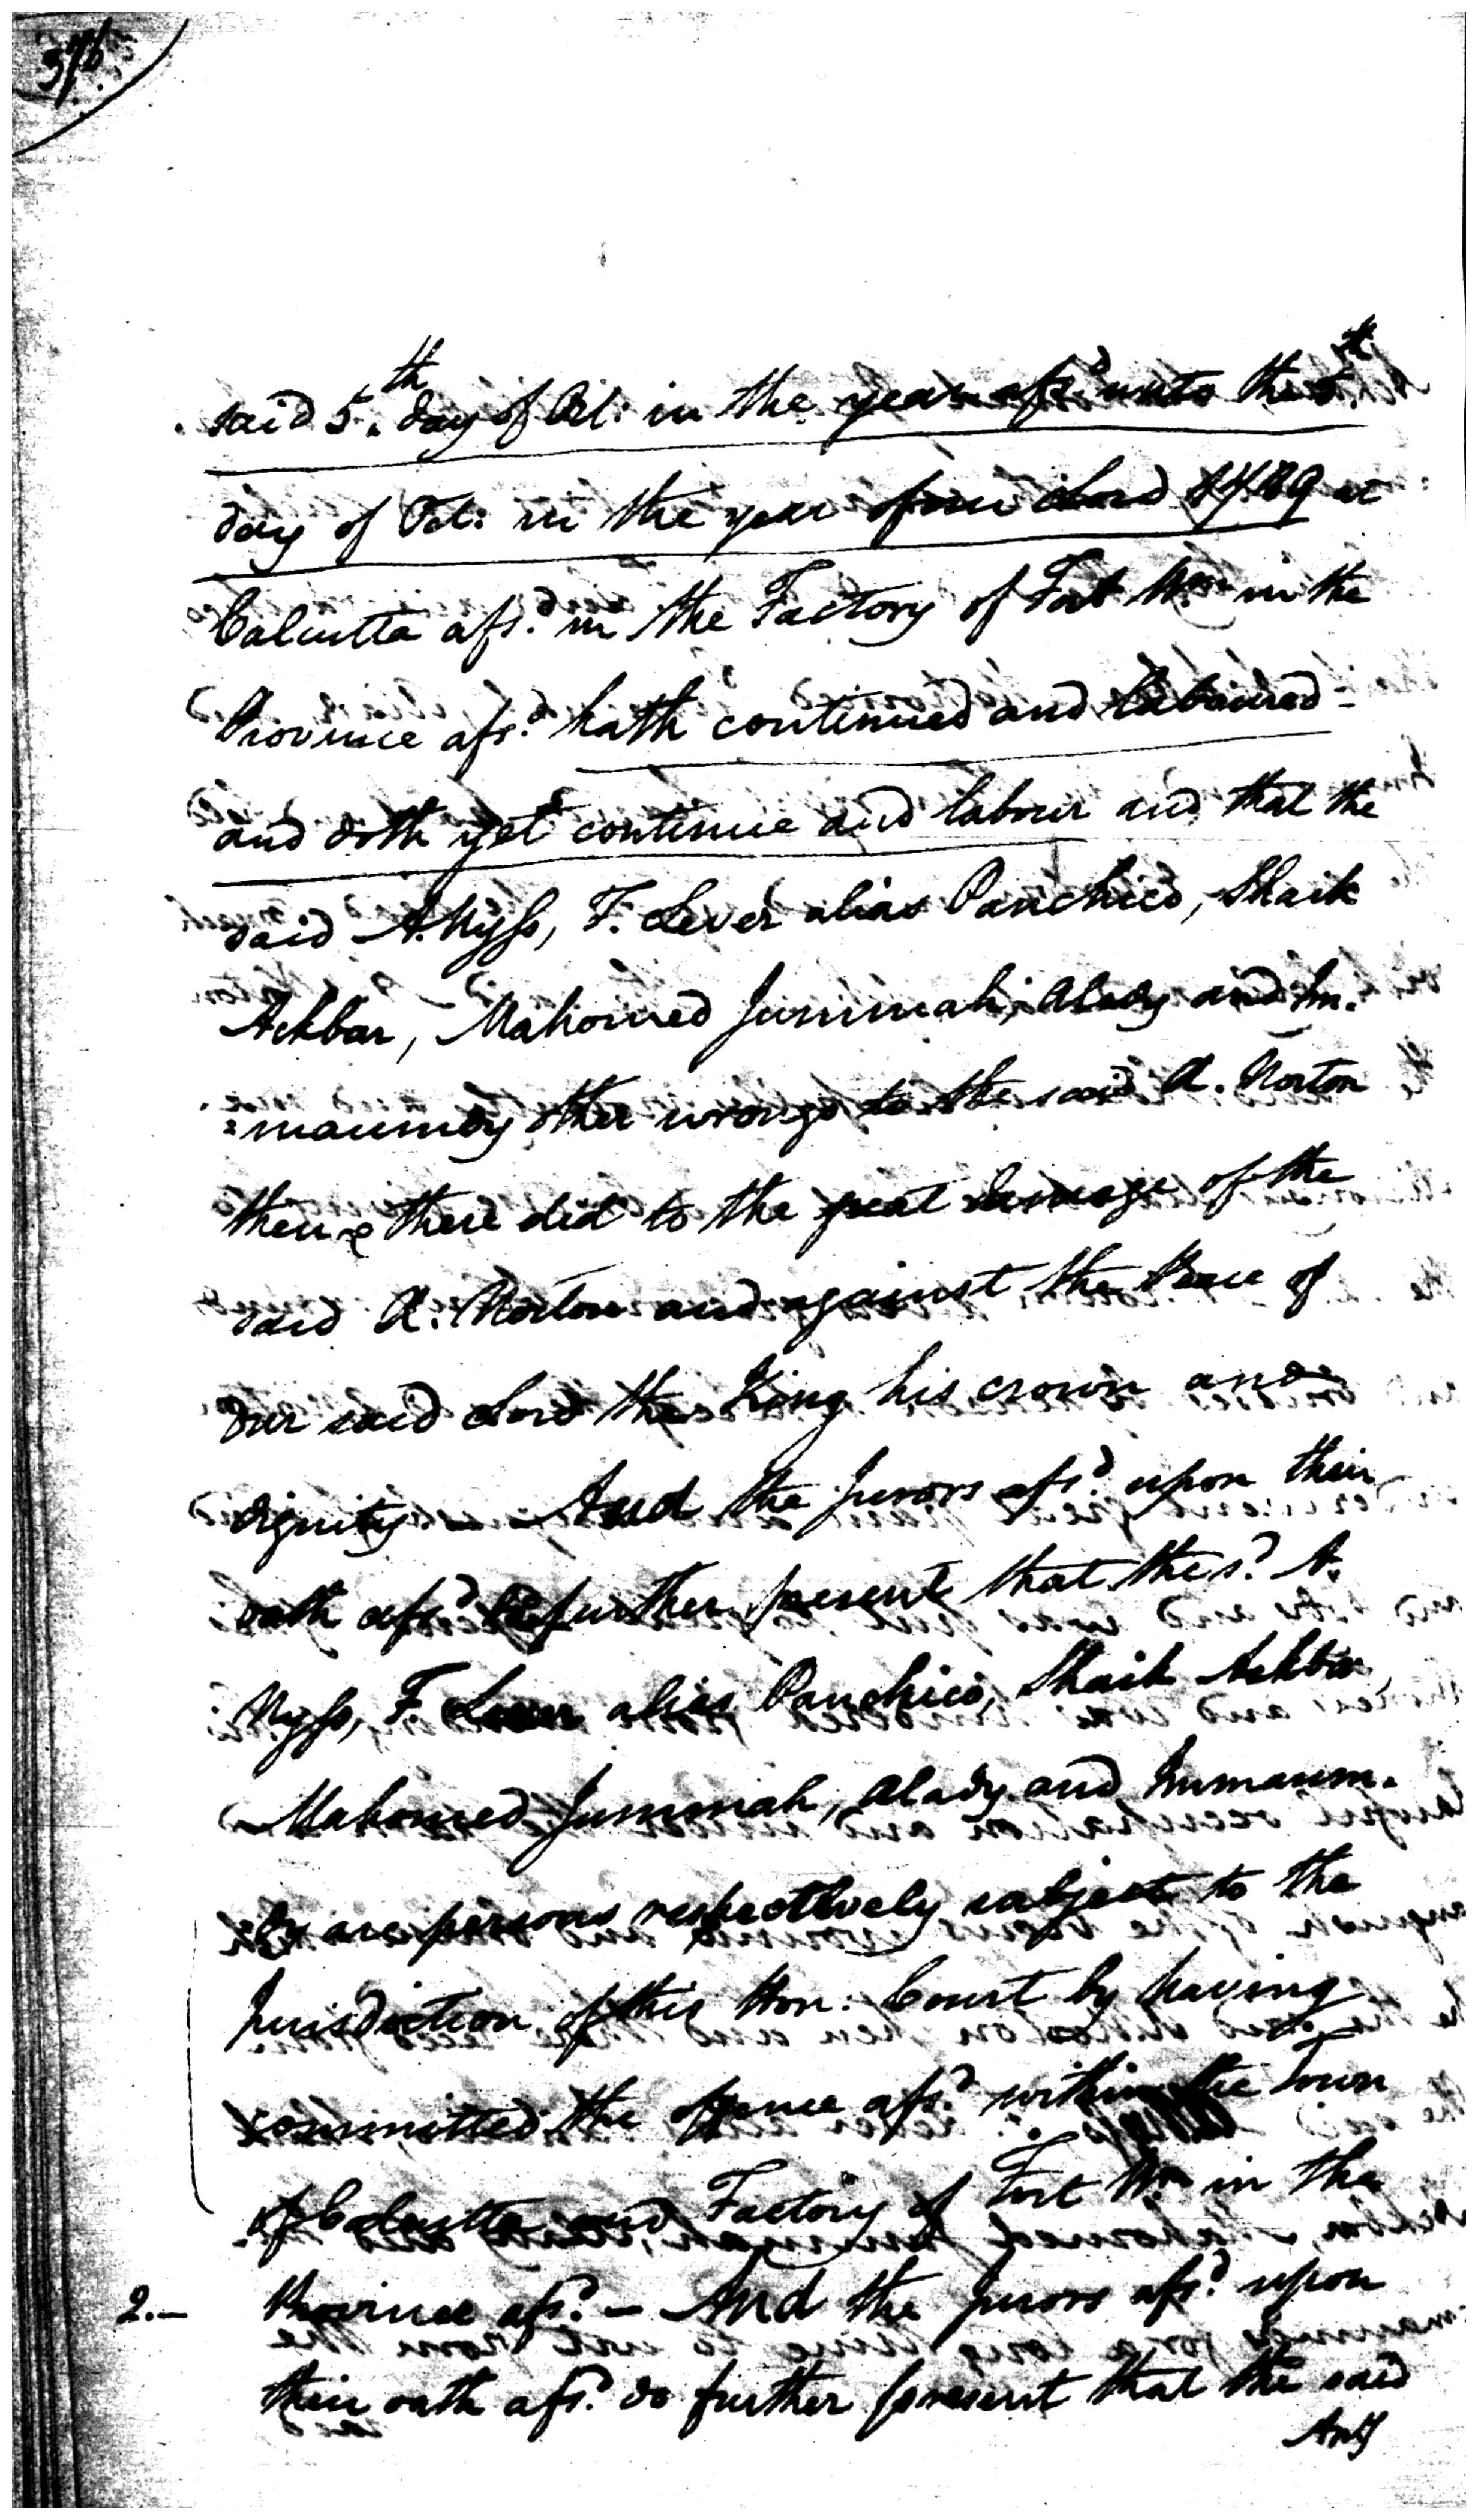 376
said 5th day of Oct: in the year afsd. unto the 5th
day of Oct: in the year of our Lord 1789 at
Calcutta afsd. in the Factory of Fort Wm. in the
Province afsd. hath continued and laboured -
and doth yet continue and labour and that the
said A. Nyss, F. Lever alias Panchico, Shaik
Ackbar, Mahomed Jummah, Alady and Im-
=maumdy other wrongs to the said A. Norton
then & there did to the great damage of the
said A. Norton and against the Peace of
Our said Lord the King his crown and
dignity. — And the Jurors afsd. upon their
oath afsd. do further present that the sd. A.
Nyss, F. Lever alias Panchico, Shaik Ackbar
Mahomed Jummah, Alady and Immaum-
=dy are persons respectively subject to the
Jurisdiction of this Hon: Court by having
committed the offence afsd. within the Town
of Calcutta and Factory of Fort Wm in the
2.— Province afsd. — And the Jurors afsd. upon
their oath afsd. do further present that the said